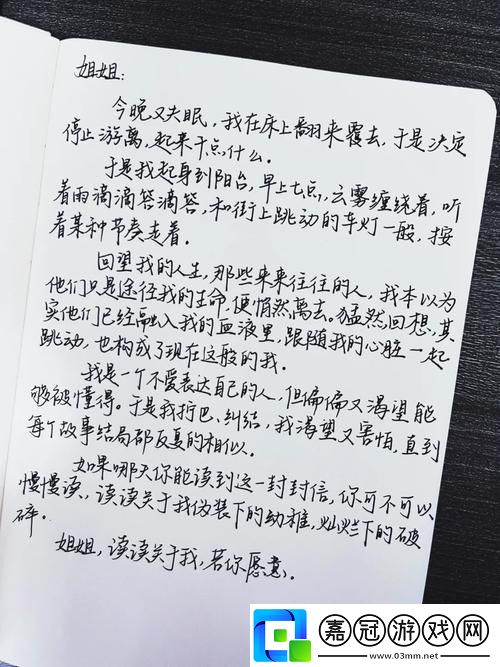 姐姐：
今晚又失眠，我在床上翻来覆去，于是决定
停止游离，起来干点什么。
于是我起身到阳台，早上七点，云雾缠绕着，听
着雨滴滴答滴答，和街上跳动的车灯一般，按
着某种节奏走着。
回望我的人生，那些来来往往的人，我本以为
他们只是途径我的生命，便悄然离去。猛然回想，其
实他们已经融入我的血液里，跟随我的心脏一起
跳动，也构成了现在这般的我。
我是一个不爱表达自己的人，但偏偏又渴望能
够被懂得。于是我拧巴、纠结，我渴望又害怕，直到
每个故事结局都反复的相似。
如果哪天你能读到这一封封信，你可不可以
慢慢读，读读关于我伪装下的幼稚，灿烂下的破
碎。
姐姐，读读关于我，若你愿意。
嘉冠游戏网
www.03mm.net